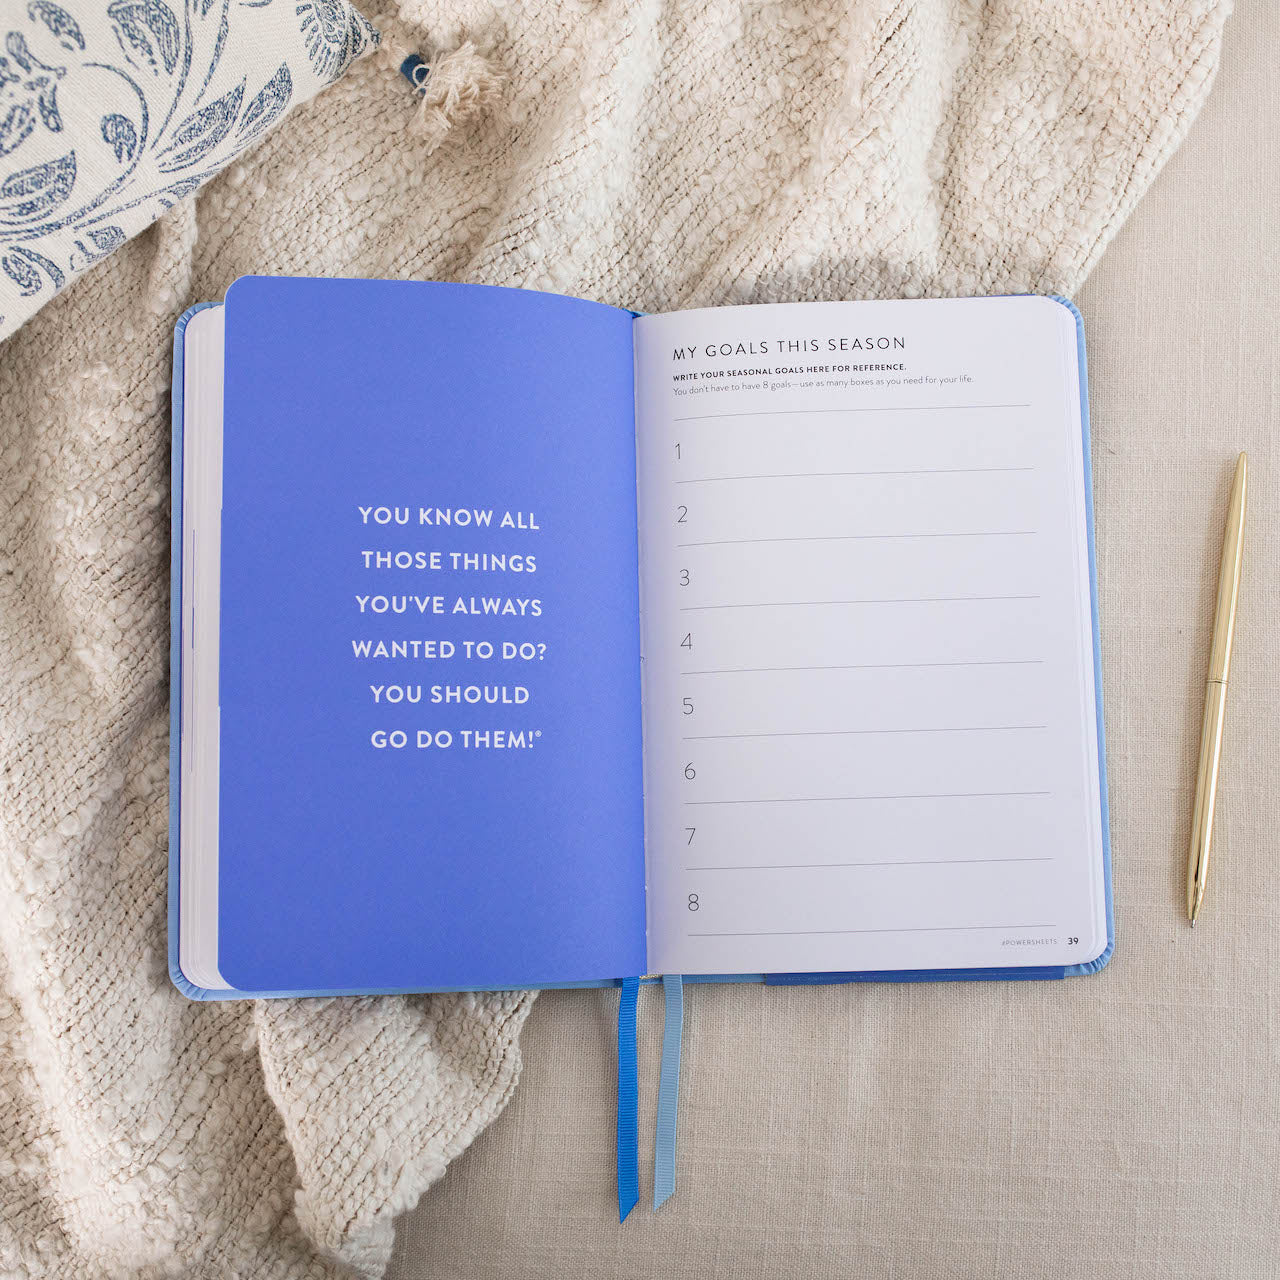 YOU KNOW ALL
THOSE THINGS
YOU'VE ALWAYS
WANTED TO DO?
YOU SHOULD
GO DO THEM!®
MY GOALS THIS SEASON
WRITE YOUR SEASONAL GOALS HERE FOR REFERENCE.
You don't have to have 8 goals—use as many boxes as you need for your life.
1
2
3
4
5
6
7
8
#POWERSHEETS 39